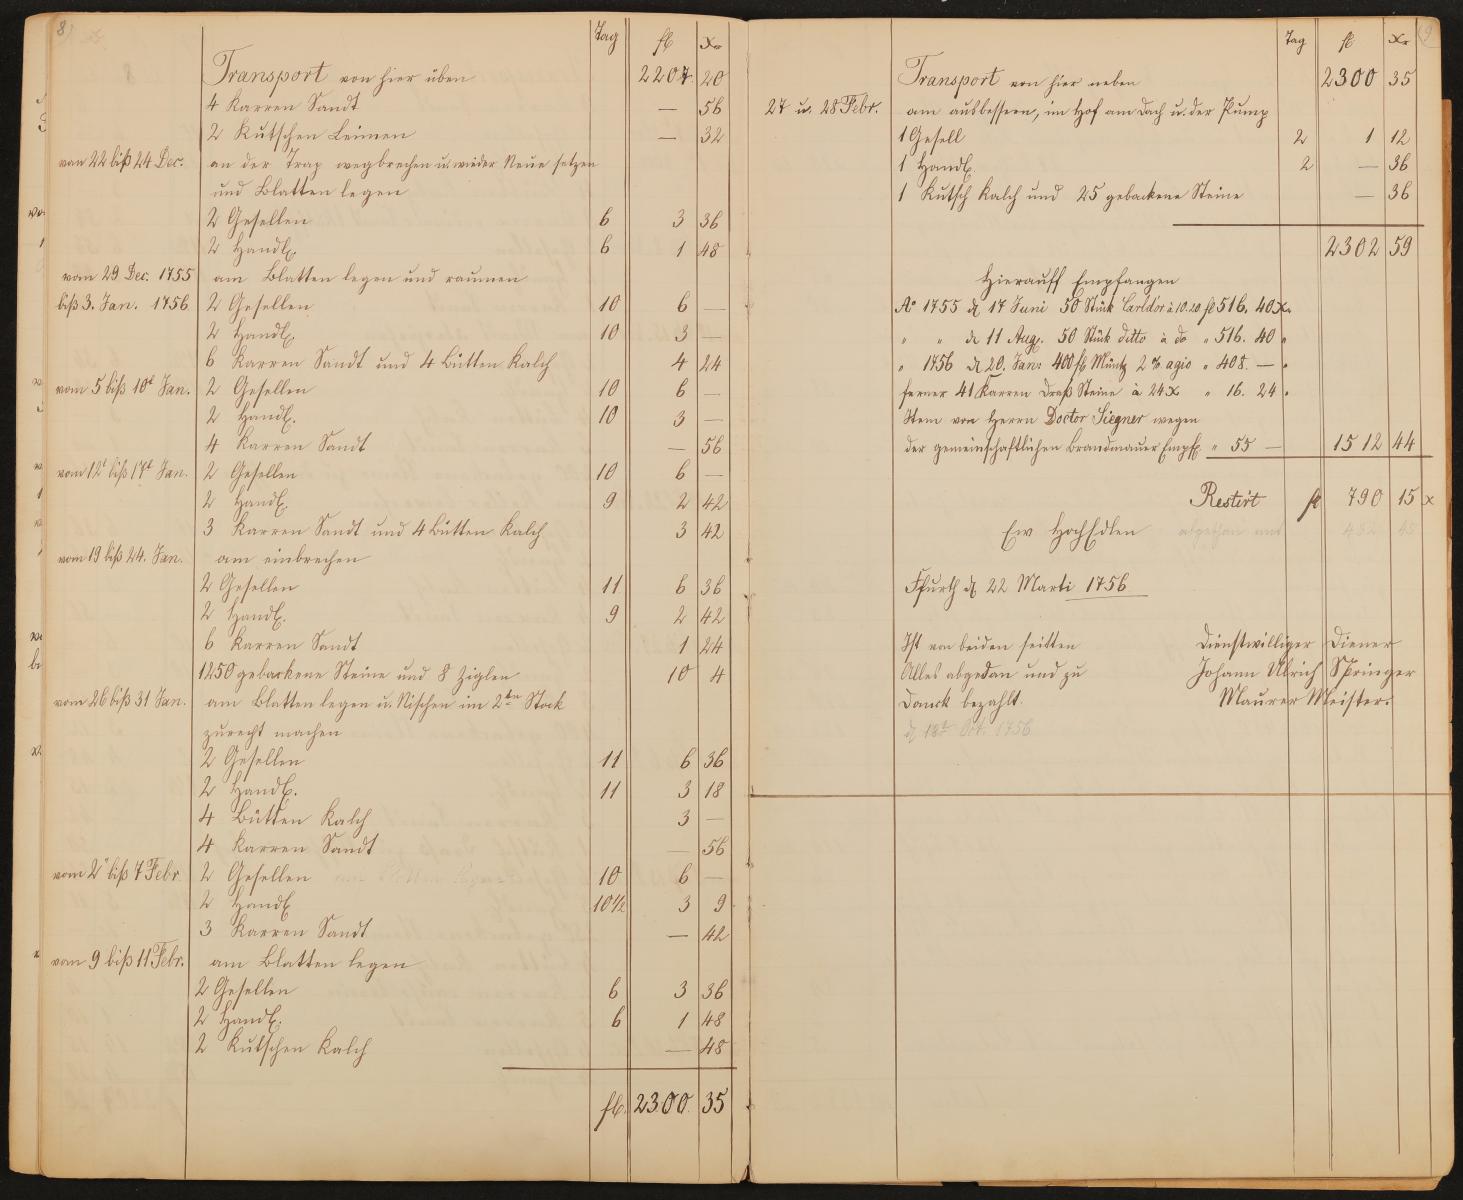 8)
Tag fl xr
Transport von hier üben 2207 20
4 Karren Sandt — 56
2 Kutschen Leimen — 32
vom 22 biß 24 Dec. an der Trap wegbrechen u. wieder Neue setzen
und Blatten legen
2 Gesellen 6 3 36
2 Handl. 6 1 48
vom 29 Dec. 1755 am Blatten legen und raumen
biß 3. Jan. 1756 2 Gesellen 10 6 —
2 Handl. 10 3 —
6 Karren Sandt und 4 Bütten Kalch 4 24
vom 5 biß 10t Jan. 2 Gesellen 10 6 —
2 Handl. 10 3 —
4 Karren Sandt — 56
vom 12t biß 17t Jan. 2 Gesellen 10 6 —
2 Handl. 9 2 42
3 Karren Sandt und 4 Bütten Kalch 3 42
vom 19 biß 24. Jan. am einbrechen
2 Gesellen 11 6 36
2 Handl. 9 2 42
6 Karren Sandt 1 24
1250 gebackene Steine und 8 Ziglen 10 4
vom 26 biß 31 Jan. am Blatten legen u. Nischen im 2tn Stock
zurecht machen
2 Gesellen 11 6 36
2 Handl. 11 3 18
4 Bütten Kalch 3 —
4 Karren Sandt — 56
vom 2t biß 7 Febr 2 Gesellen 10 6 —
2 Handl 10½ 3 9
3 Karren Sandt — 42
vom 9 biß 11 Febr. am Blatten legen
2 Gesellen 6 3 36
2 Handl. 6 1 48
2 Kutschen Kalch — 48
fl. 2300 35
(9
Tag fl xr
Transport von hier neben 2300 35
27 u. 28 Febr. am ausbessern, im Hof am Dach u. der Pump
1 Gesell 2 1 12
1 Handl. 2 — 36
1 Kutsch Kalch und 25 gebackene Steine — 36
2302 59
Hierauff Empfangen
Ao 1755 d 17 Juni 50 Stük Carldor à 10.20 fl 516. 40 x.
" " d 11 Aug. 50 Stük ditto à do " 516. 40 "
" 1756 d 20. Jan: 400 fl Müntz 2 % agio " 408. — "
ferner 41 Karren Draß Steine à 24 x " 16. 24 "
Item von Herrn Doctor Siegner wegen
der gemeinschaftlichen Brandmauer Empf. " 55 — 1512 44
Restirt fl 790 15 x
Ew HochEdlen
Ffurth d 22 Marti 1756
Ist von beiden seitten Dienstwilliger Diener
Alles abgedan und zu Johann Ulrich Springer
Danck bezahlt. Maurer Meister.
d 18t Oct. 1756